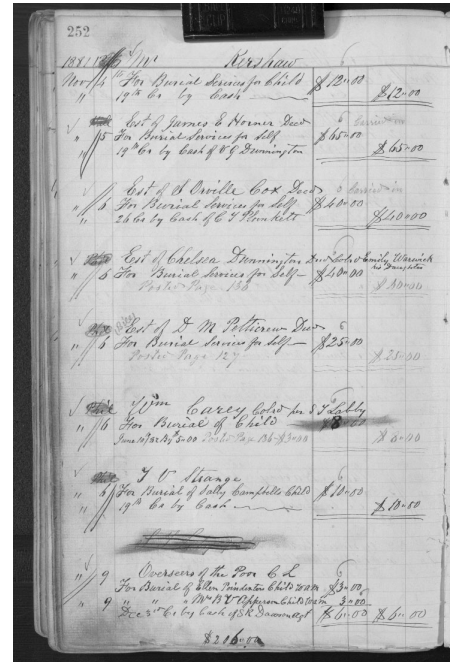 252
1881 Mr Kershaw 6
Nov 4 For Burial Services for Child $12.00
" 19th Cr by Cash $12.00
Est of James E Horner Decd 6
" 5 For Burial Services for Self $65.00
19th Cr by Cash of V G Dunnington $65.00
Est of S Orville Cox Decd
" 6 For Burial Services for Self $40.00
" 26 Cr by Cash of C T Plunkett $40.00
Est of Chelsea Dunnington Decd Cold & Emily Warwick
his Daughter
" 6 For Burial Services for Self $40.00
Posted Page 136 $40.00
Est of D M Petticrew Decd 6
" 6 For Burial Services for Self $25.00
Posted Page 127 $25.00
Wm Carey Cold per S T Labby
" 6 For Burial of Child $8.00
June 10/82 By $5.00 Posted Page 136 $3.00
T V Strange 6
" 6 For Burial of Sally Campbells Child $10.00
" 19th Cr by Cash $10.00
Overseers of the Poor C L 6
" 9 For Burial of Ellen Poindexters Child $3.00
" 9 " " Mrs B V Appersons Child 3.00
Dec 3rd Cr by Cash of S R Dawson Agt $6.00 $6.00
$206.00